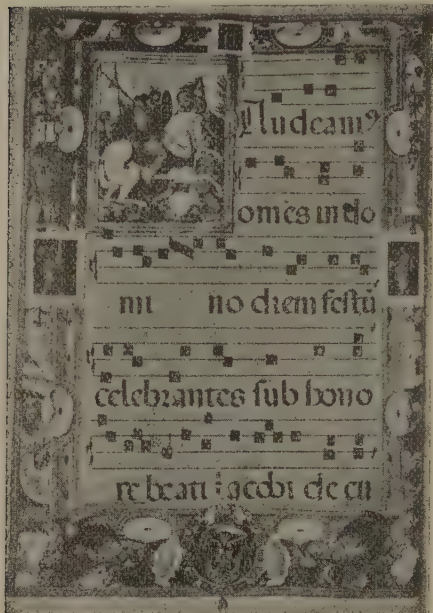 Audeam⁹
om̄es in do
mi no diem festū
celebrantes sub hono
re beati iacobi de cu